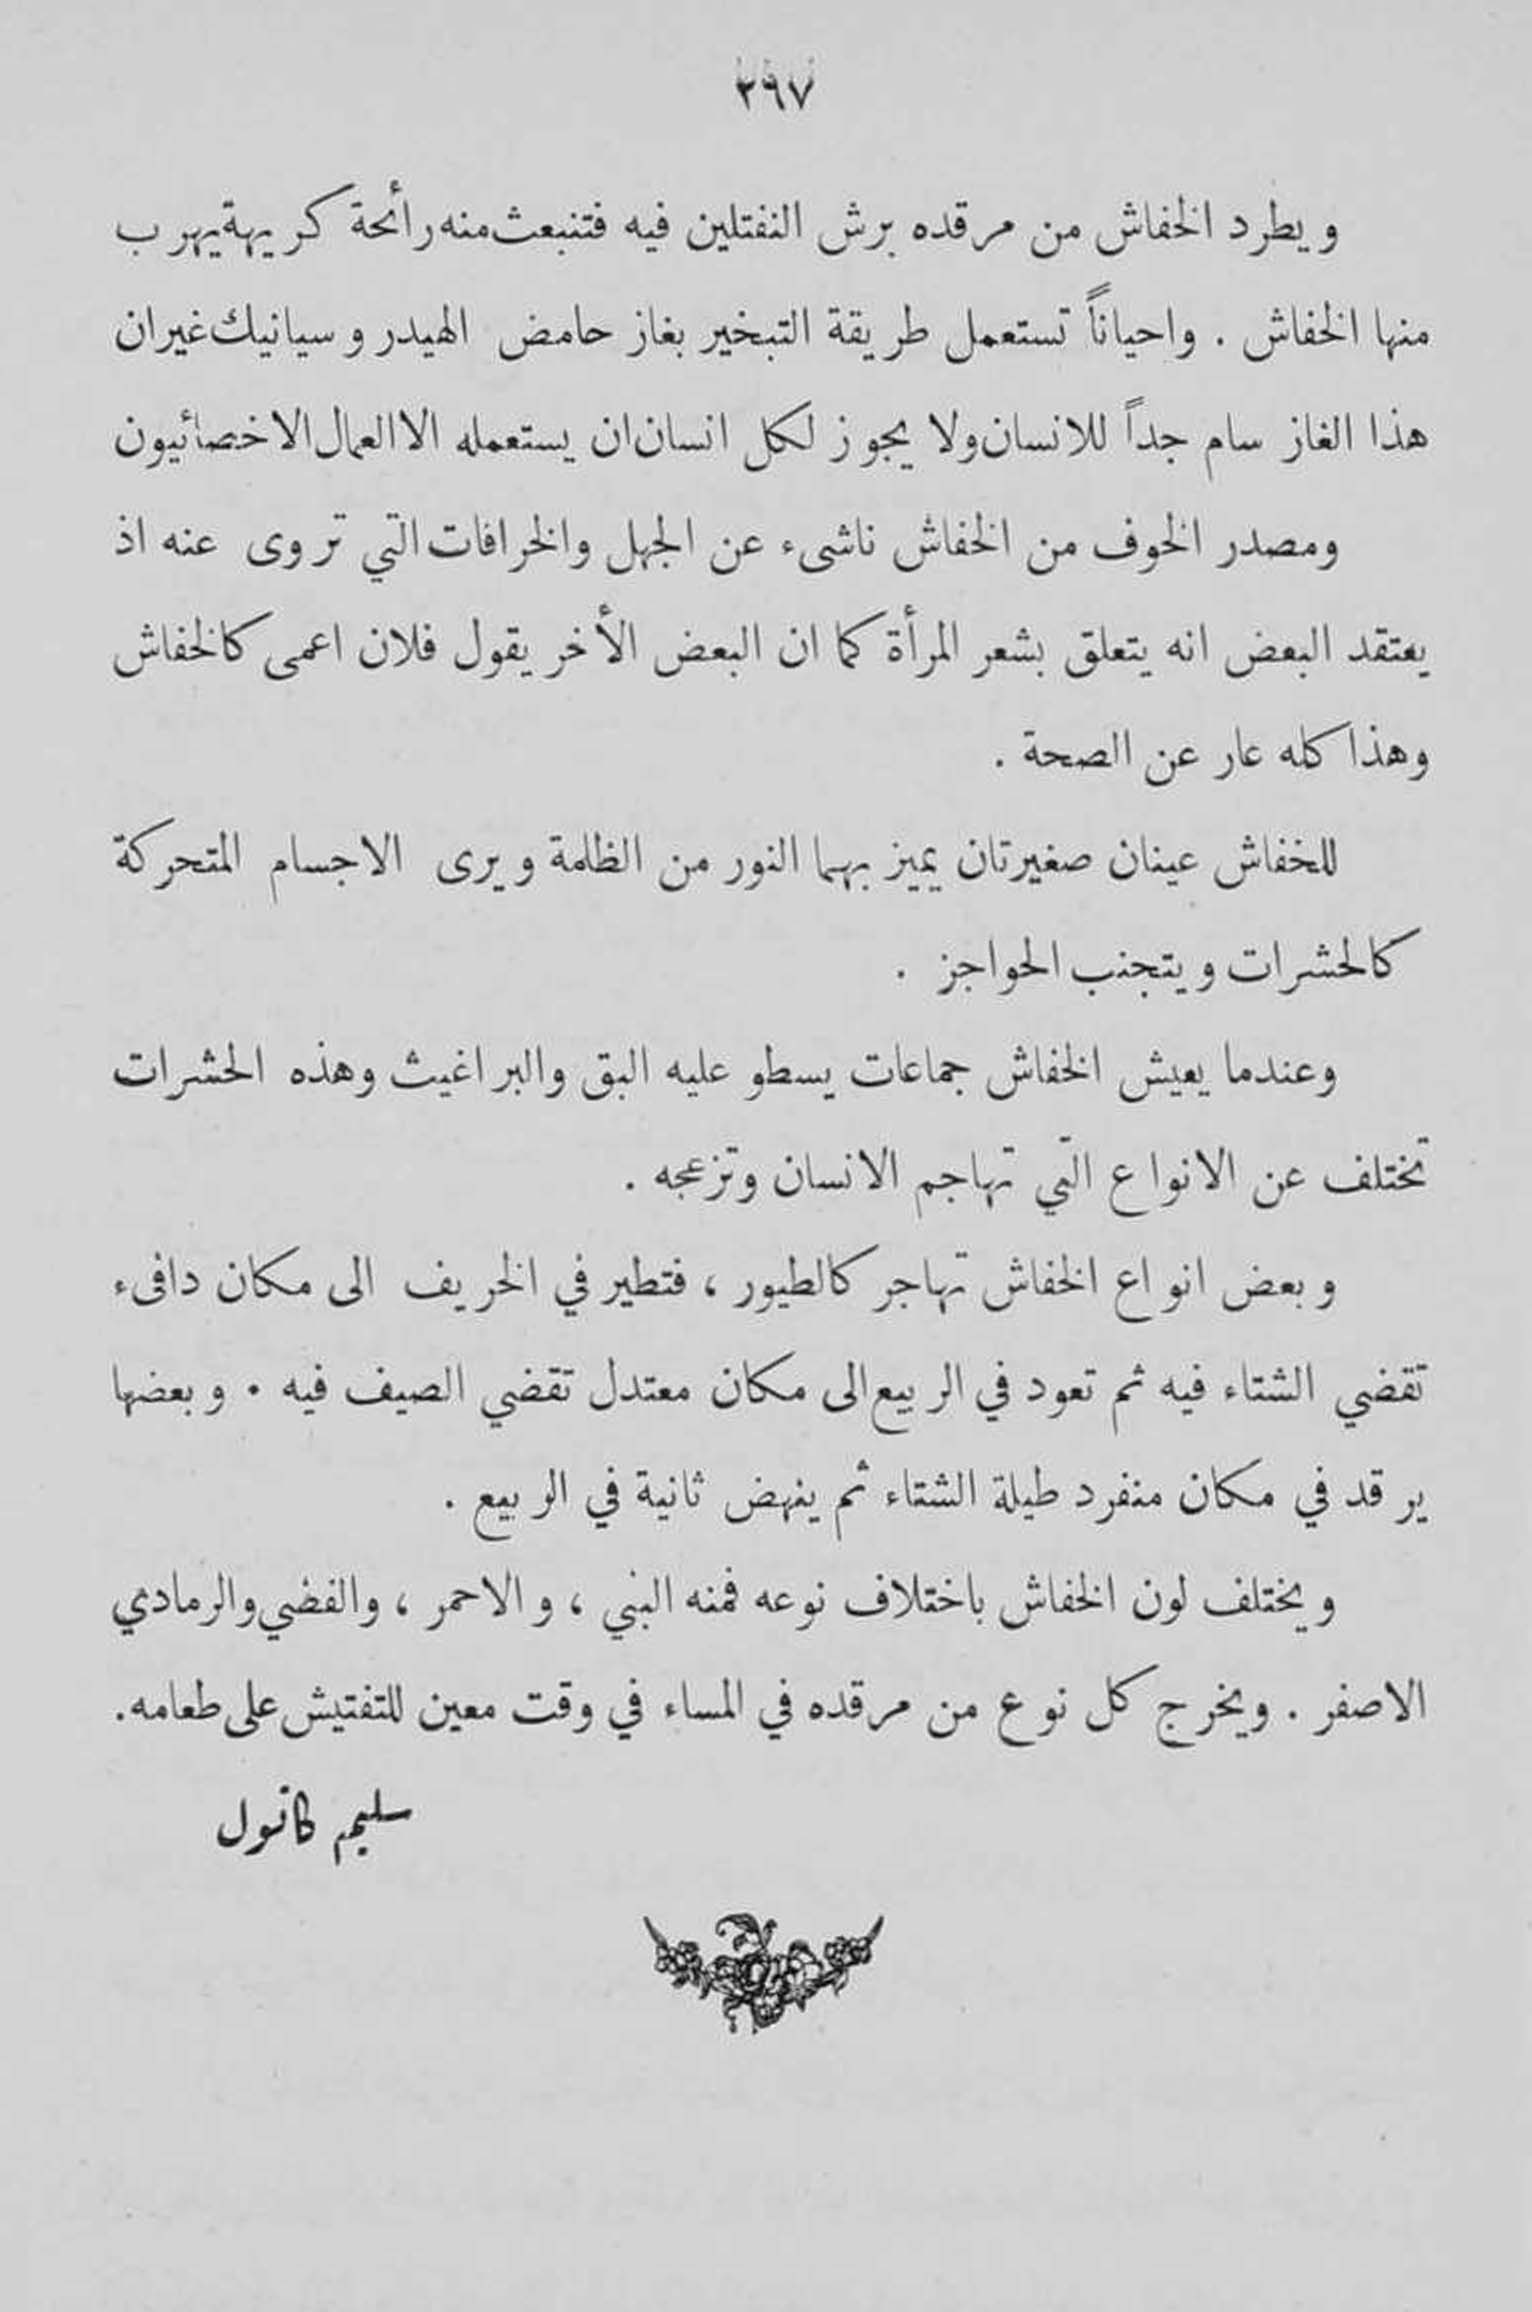 ٣٩٧
ويطرد الخفاش من مرقده برش النفتلين فيه فتنبعث منه رائحة كريهة يهرب
منها الخفاش . واحياناً تستعمل طريقة التبخير بغاز حامض الهيدروسيانيك غير ان
هذا الغاز سام جداً للانسان ولا يجوز لكل انسان ان يستعمله الا العمال الاخصائيون
ومصدر الخوف من الخفاش ناشىء عن الجهل والخرافات التي تروى عنه اذ
يعتقد البعض انه يتعلق بشعر المرأة كما ان البعض الأخر يقول فلان اعمى كالخفاش
وهذا كله عار عن الصحة .
للخفاش عينان صغيرتان يميز بهما النور من الظلمة ويرى الاجسام المتحركة
كالحشرات ويتجنب الحواجز .
وعندما يعيش الخفاش جماعات يسطو عليه البق والبراغيث وهذه الحشرات
تختلف عن الانواع التي تهاجم الانسان وتزعجه .
وبعض انواع الخفاش تهاجر كالطيور ، فتطير في الخريف الى مكان دافىء
تقضي الشتاء فيه ثم تعود في الربيع الى مكان معتدل تقضي الصيف فيه . وبعضها
يرقد في مكان منفرد طيلة الشتاء ثم ينهض ثانية في الربيع .
ويختلف لون الخفاش باختلاف نوعه فمنه البني ، والاحمر ، والفضي والرمادي
الاصفر . ويخرج كل نوع من مرقده في المساء في وقت معين للتفتيش على طعامه .
سليم كاتول